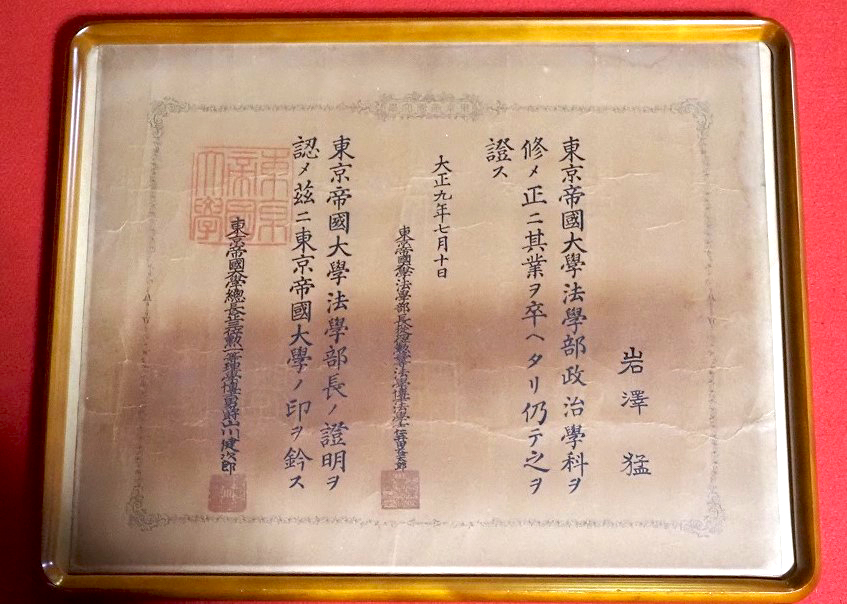 岩澤猛
東京帝國大學法學部政治學科ヲ
修メ正ニ其業ヲ卒ヘタリ仍テ之ヲ
證ス
大正九年七月十日
東京帝國大學法學部長
東京帝國大學法學部長ノ證明ヲ
認メ茲ニ東京帝國大學ノ印ヲ鈐ス
東京帝國大學總長正三位勲一等理學博士男爵山川健次郎
東京
帝國
大學